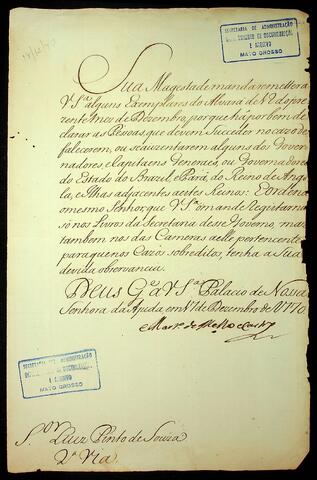 SECRETARIA DE ADMINISTRAÇÃO
E ARQUIVO
MATO GROSSO
Sua Magestade manda remetter a
V. S.ª alguns Exemplares do Alvará de
zente mes de Dezembro, porque há por bem de
clarar as Pessoas que devem Succeder no cazo de
falecerem, ou se auzentarem alguns dos Gover
nadores e Capitaens Generaes, ou Governadores
do Estado do Brazil e Pará, do Reino de Ango
la, e Ilhas adjacentes a estes Reinos: E ordena
o mesmo Senhor que V. S.ª o mande Registar não
só nos Livros da Secretaria desse Governo, mas
tambem nos das Cameras a elle pertencentes
para que nos Cazos sobreditos, tenha a Sua
devida observancia.
Deus G.e a V. S.ª Palacio de Nossa
Senhora da Ajuda em de Dezembro de 1770
Mart.o de Mello e Castro
SECRETARIA DE ADMINISTRAÇÃO
E ARQUIVO
MATO GROSSO
S.or Luiz Pinto de Souza
2.ª Via